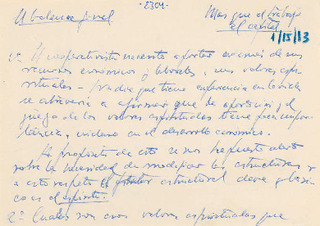 2304.
A balance final
Mas que el trabajo
el capital
1/15/13
1º El cooperativista necesita aportar encima de sus
recursos economicos y laborales, unos valores espi-
rituales - Nadie que tiene experiencia en la vida
se atreverá a afirmar que la aportacion y el
juego de los valores espirituales tiene poca impor-
tancia, incluso en el desarrollo economico.
A proposito de esto se nos
sobre la necesidad de modificar las estructuras y
a este respeto el factor estructural clave y basi-
co es el espiritu.
2º Cuales son esos valores espirituales que